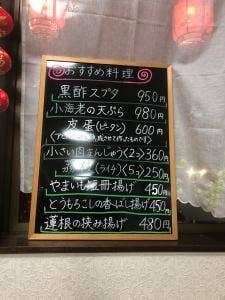 おすすめ料理
黒酢スブタ 950円
小海老の天ぷら 980円
皮蛋(ピータン) 600円
小さい肉まんじゅう〈2コ〉360円
(ライチ)〈5コ〉250円
やまいも短冊揚げ 450円
とうもろこしの香ばし揚げ450円
蓮根の挟み揚げ 480円